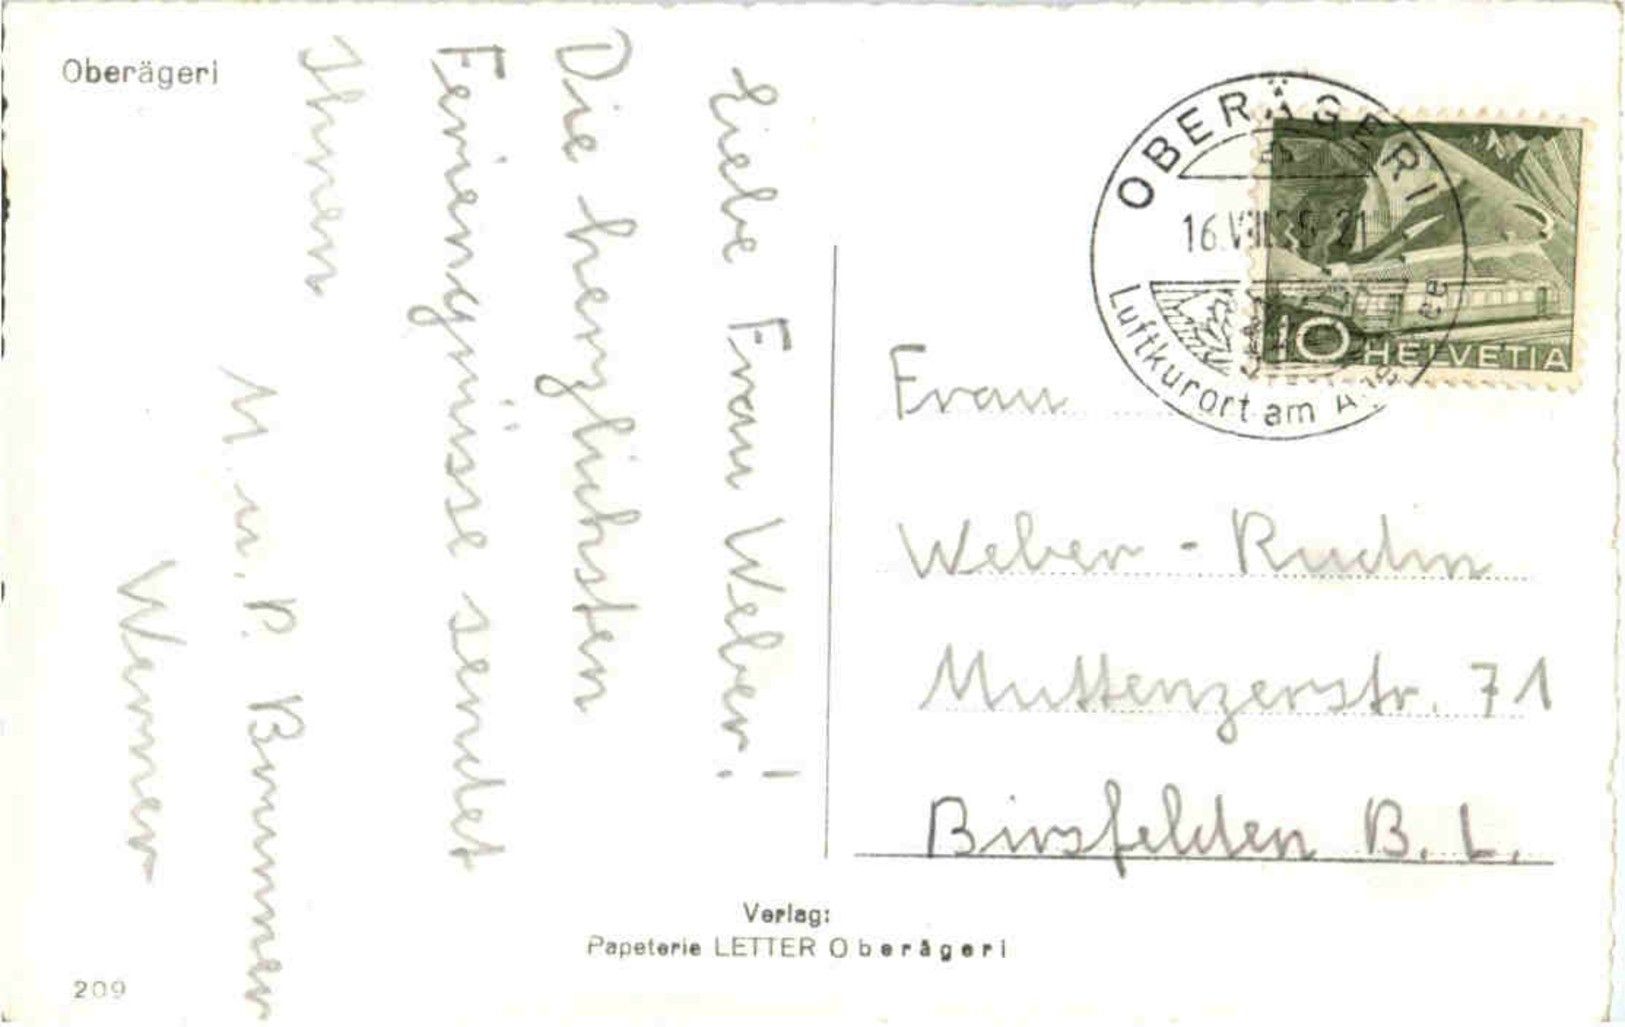 Oberägeri
Liebe Frau Weber!
Die herzlichsten
Feriengrüsse sendet
Ihnen
M. u. P. Brunner
Werner
OBERÄGERI
16.VIII. 21
Luftkurort am
10 HELVETIA
Frau
Weber - Rudin
Muttenzerstr. 71
Birsfelden B. L.
Verlag:
Papeterie LETTER Oberägeri
209